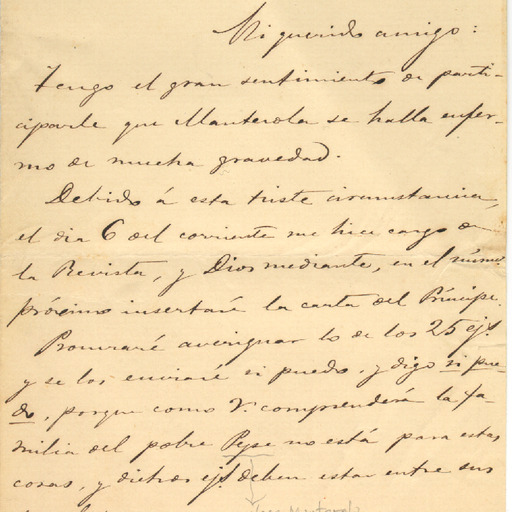 Mi querido amigo:
Tengo el gran sentimiento de parti-
ciparle que Manterola se halla enfer-
mo de mucha gravedad.
Debido á esta triste circunstancia,
el dia 6 del corriente me hice cargo de
la Revista, y Dios mediante, en el númo
próximo insertaré la carta del Príncipe.
Procuraré averiguar lo de los 25 ejs.
y se los enviaré si puedo, y digo si pue-
do, porque como V. comprenderá la fa-
milia del pobre Pepe no está para estas
cosas, y dichos ejs. deben estar entre sus